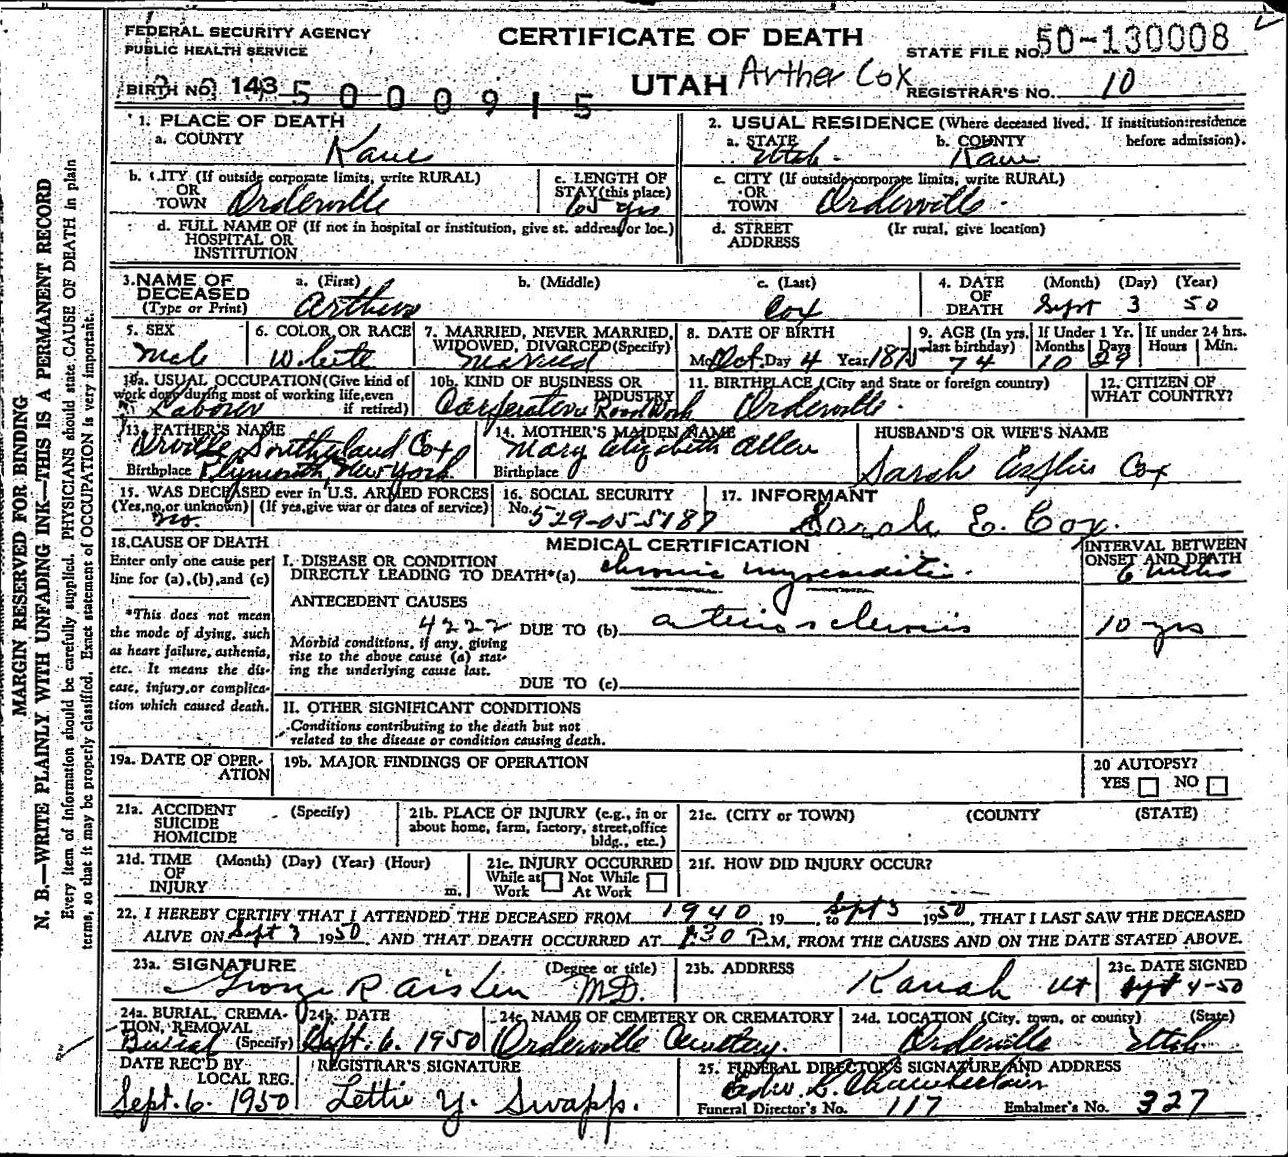 FEDERAL SECURITY AGENCY
PUBLIC HEALTH SERVICE
CERTIFICATE OF DEATH
STATE FILE NO. 50-130008
BIRTH NO. 143
5000915
UTAH Arther Cox
REGISTRAR'S NO. 10
1. PLACE OF DEATH
a. COUNTY Kane
2. USUAL RESIDENCE (Where deceased lived. If institution: residence before admission).
a. STATE Utah. b. COUNTY Kane
b. CITY (If outside corporate limits, write RURAL)
OR TOWN Orderville
c. LENGTH OF STAY (this place)
65 yrs
c. CITY (If outside corporate limits, write RURAL)
OR TOWN Orderville.
d. FULL NAME OF (If not in hospital or institution, give st. address or loc.)
HOSPITAL OR INSTITUTION
d. STREET ADDRESS (Ir rural, give location)
3. NAME OF DECEASED (Type or Print)
a. (First) b. (Middle) c. (Last)
Arthur Cox
4. DATE OF DEATH (Month) (Day) (Year)
Sept 3 50
5. SEX
Male
6. COLOR OR RACE
White
7. MARRIED, NEVER MARRIED, WIDOWED, DIVORCED (Specify)
Married
8. DATE OF BIRTH
Mo. Oct. Day 4 Year 187
9. AGE (In yrs. last birthday)
74
If Under 1 Yr. Months Days
10 29
If under 24 hrs. Hours Min.
10a. USUAL OCCUPATION (Give kind of work done during most of working life, even if retired)
Laborer
10b. KIND OF BUSINESS OR INDUSTRY
Road Work
11. BIRTHPLACE (City and State or foreign country)
Orderville.
12. CITIZEN OF WHAT COUNTRY?
13. FATHER'S NAME
Orville Southerland Cox
Birthplace Plymouth, New York
14. MOTHER'S MAIDEN NAME
Mary Elizabeth Allen
Birthplace
HUSBAND'S OR WIFE'S NAME
Sarah Cox
15. WAS DECEASED ever in U.S. ARMED FORCES
(Yes, no, or unknown) (If yes, give war or dates of service)
no.
16. SOCIAL SECURITY
No. 529-05-5187
17. INFORMANT
Sarah E. Cox.
18. CAUSE OF DEATH
Enter only one cause per line for (a), (b), and (c)
*This does not mean the mode of dying, such as heart failure, asthenia, etc. It means the disease, injury, or complication which caused death.
MEDICAL CERTIFICATION
INTERVAL BETWEEN ONSET AND DEATH
I. DISEASE OR CONDITION
DIRECTLY LEADING TO DEATH*(a) chronic myocarditis.
6 mths
ANTECEDENT CAUSES
4222 DUE TO (b) arteriosclerosis
10 yrs
Morbid conditions, if any, giving rise to the above cause (a) stating the underlying cause last.
DUE TO (c)
II. OTHER SIGNIFICANT CONDITIONS
Conditions contributing to the death but not related to the disease or condition causing death.
19a. DATE OF OPERATION
19b. MAJOR FINDINGS OF OPERATION
20 AUTOPSY?
YES NO
21a. ACCIDENT SUICIDE HOMICIDE (Specify)
21b. PLACE OF INJURY (e.g., in or about home, farm, factory, street, office bldg., etc.)
21c. (CITY or TOWN) (COUNTY (STATE)
21d. TIME OF INJURY (Month) (Day) (Year) (Hour) m.
21e. INJURY OCCURRED
While at Work Not While At Work
21f. HOW DID INJURY OCCUR?
22. I HEREBY CERTIFY THAT I ATTENDED THE DECEASED FROM 1940, 19 to Sept 3 1950, THAT I LAST SAW THE DECEASED
ALIVE ON Sept 3 1950, AND THAT DEATH OCCURRED AT 1:30 P.M, FROM THE CAUSES AND ON THE DATE STATED ABOVE.
23a. SIGNATURE (Degree or title)
George R Aiken M.D.
23b. ADDRESS
Kanab Ut
23c. DATE SIGNED
Sept 4-50
24a. BURIAL, CREMATION, REMOVAL (Specify)
Burial
24b. DATE
Sept. 6. 1950
24c. NAME OF CEMETERY OR CREMATORY
Orderville Cemetery.
24d. LOCATION (City, town, or county) (State)
Orderville Utah.
DATE REC'D BY LOCAL REG.
Sept. 6. 1950
REGISTRAR'S SIGNATURE
Lettie Y. Swapp.
25. FUNERAL DIRECTOR'S SIGNATURE AND ADDRESS
Chamberlain
Funeral Director's No. 117 Embalmer's No. 327
MARGIN RESERVED FOR BINDING
N. B.—WRITE PLAINLY WITH UNFADING INK—THIS IS A PERMANENT RECORD
Every item of information should be carefully supplied. PHYSICIANS should state CAUSE OF DEATH in plain
terms, so that it may be properly classified. Exact statement of OCCUPATION is very important.